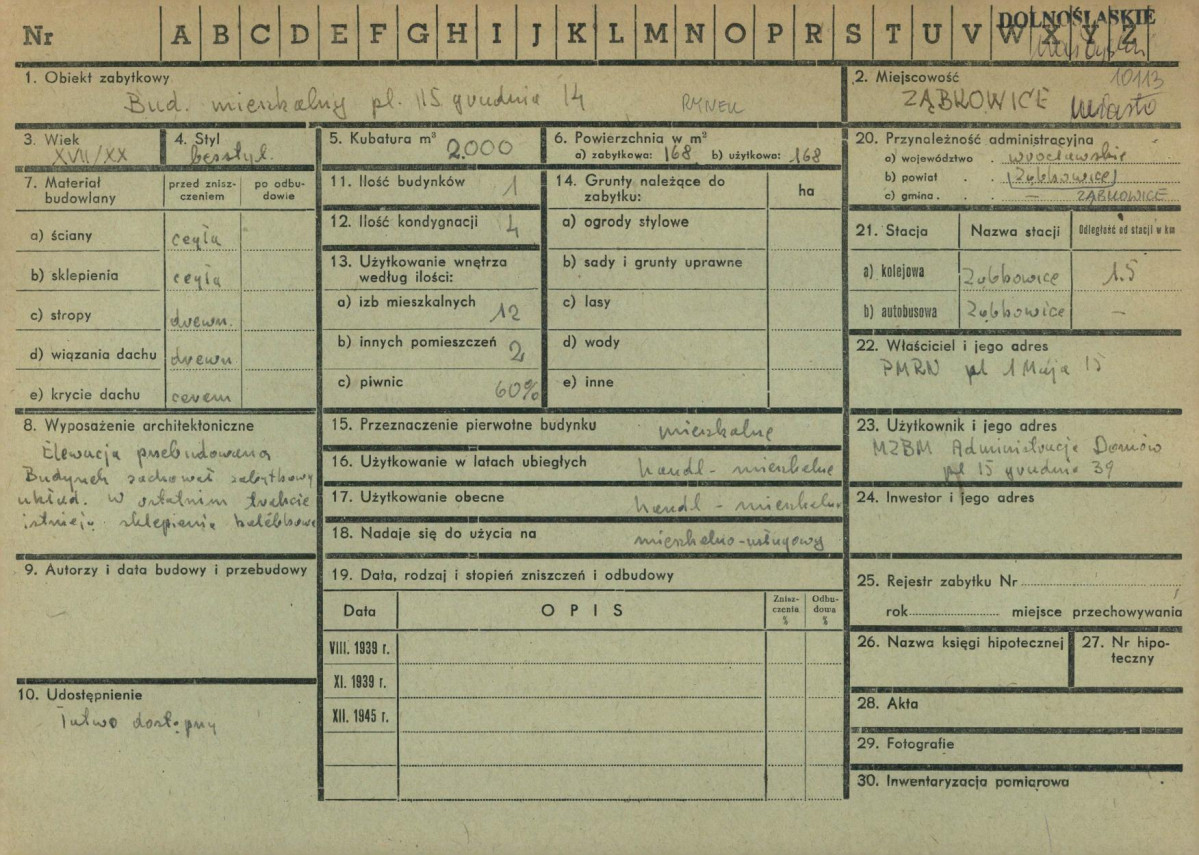 Nr A B C D E F G H I J K L M N O P R S T U V W X Y Z
DOLNOŚLĄSKIE
1. Obiekt zabytkowy
Bud. mieszkalny pl. 15 grudnia 14 RYNEK
2. Miejscowość 10113
ZĄBKOWICE miasto
3. Wiek
XVII/XX
4. Styl
besstyl.
5. Kubatura m³ 2.000
6. Powierzchnia w m²
a) zabytkowa: 168 b) użytkowa: 168
7. Materiał budowlany
przed zniszczeniem
po odbudowie
a) ściany cegła
b) sklepienia cegła
c) stropy drewn.
d) wiązania dachu drewn
e) krycie dachu cerem
8. Wyposażenie architektoniczne
Elewacja przebudowana
Budynek zachował zabytkowy
układ. W ostatnim trakcie
istnieją sklepienia kolebkowe
9. Autorzy i data budowy i przebudowy
–
10. Udostępnienie
łatwo dostępny
11. Ilość budynków 1
12. Ilość kondygnacji 4
13. Użytkowanie wnętrza
według ilości:
a) izb mieszkalnych 12
b) innych pomieszczeń 2
c) piwnic 60%
14. Grunty należące do
zabytku:
ha
a) ogrody stylowe
b) sady i grunty uprawne
c) lasy
d) wody
e) inne
15. Przeznaczenie pierwotne budynku mieszkalne
16. Użytkowanie w latach ubiegłych handl - mieszkalne
17. Użytkowanie obecne handl - mieszkalne
18. Nadaje się do użycia na mieszkalno-usługowy
19. Data, rodzaj i stopień zniszczeń i odbudowy
Data OPIS
Zniszczenia %
Odbudowa %
VIII. 1939 r.
XI. 1939 r.
XII. 1945 r.
20. Przynależność administracyjna
a) województwo . wrocławskie
b) powiat . . (Ząbkowice)
c) gmina . . . – ZĄBKOWICE
21. Stacja Nazwa stacji Odległość od stacji w km
a) kolejowa Ząbkowice 1.5
b) autobusowa Ząbkowice –
22. Właściciel i jego adres
PMRN pl 1 Maja 15
23. Użytkownik i jego adres
MZBM Administracja Domów
pl 15 grudnia 39
24. Inwestor i jego adres
25. Rejestr zabytku Nr
rok miejsce przechowywania
26. Nazwa księgi hipotecznej
27. Nr hipoteczny
28. Akta
29. Fotografie
30. Inwentaryzacja pomiarowa